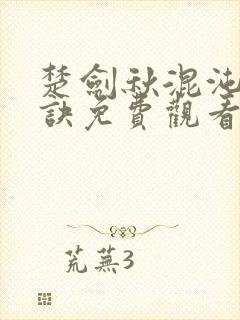 楚劍秋混沌
訣免費觀看
荒蕪3